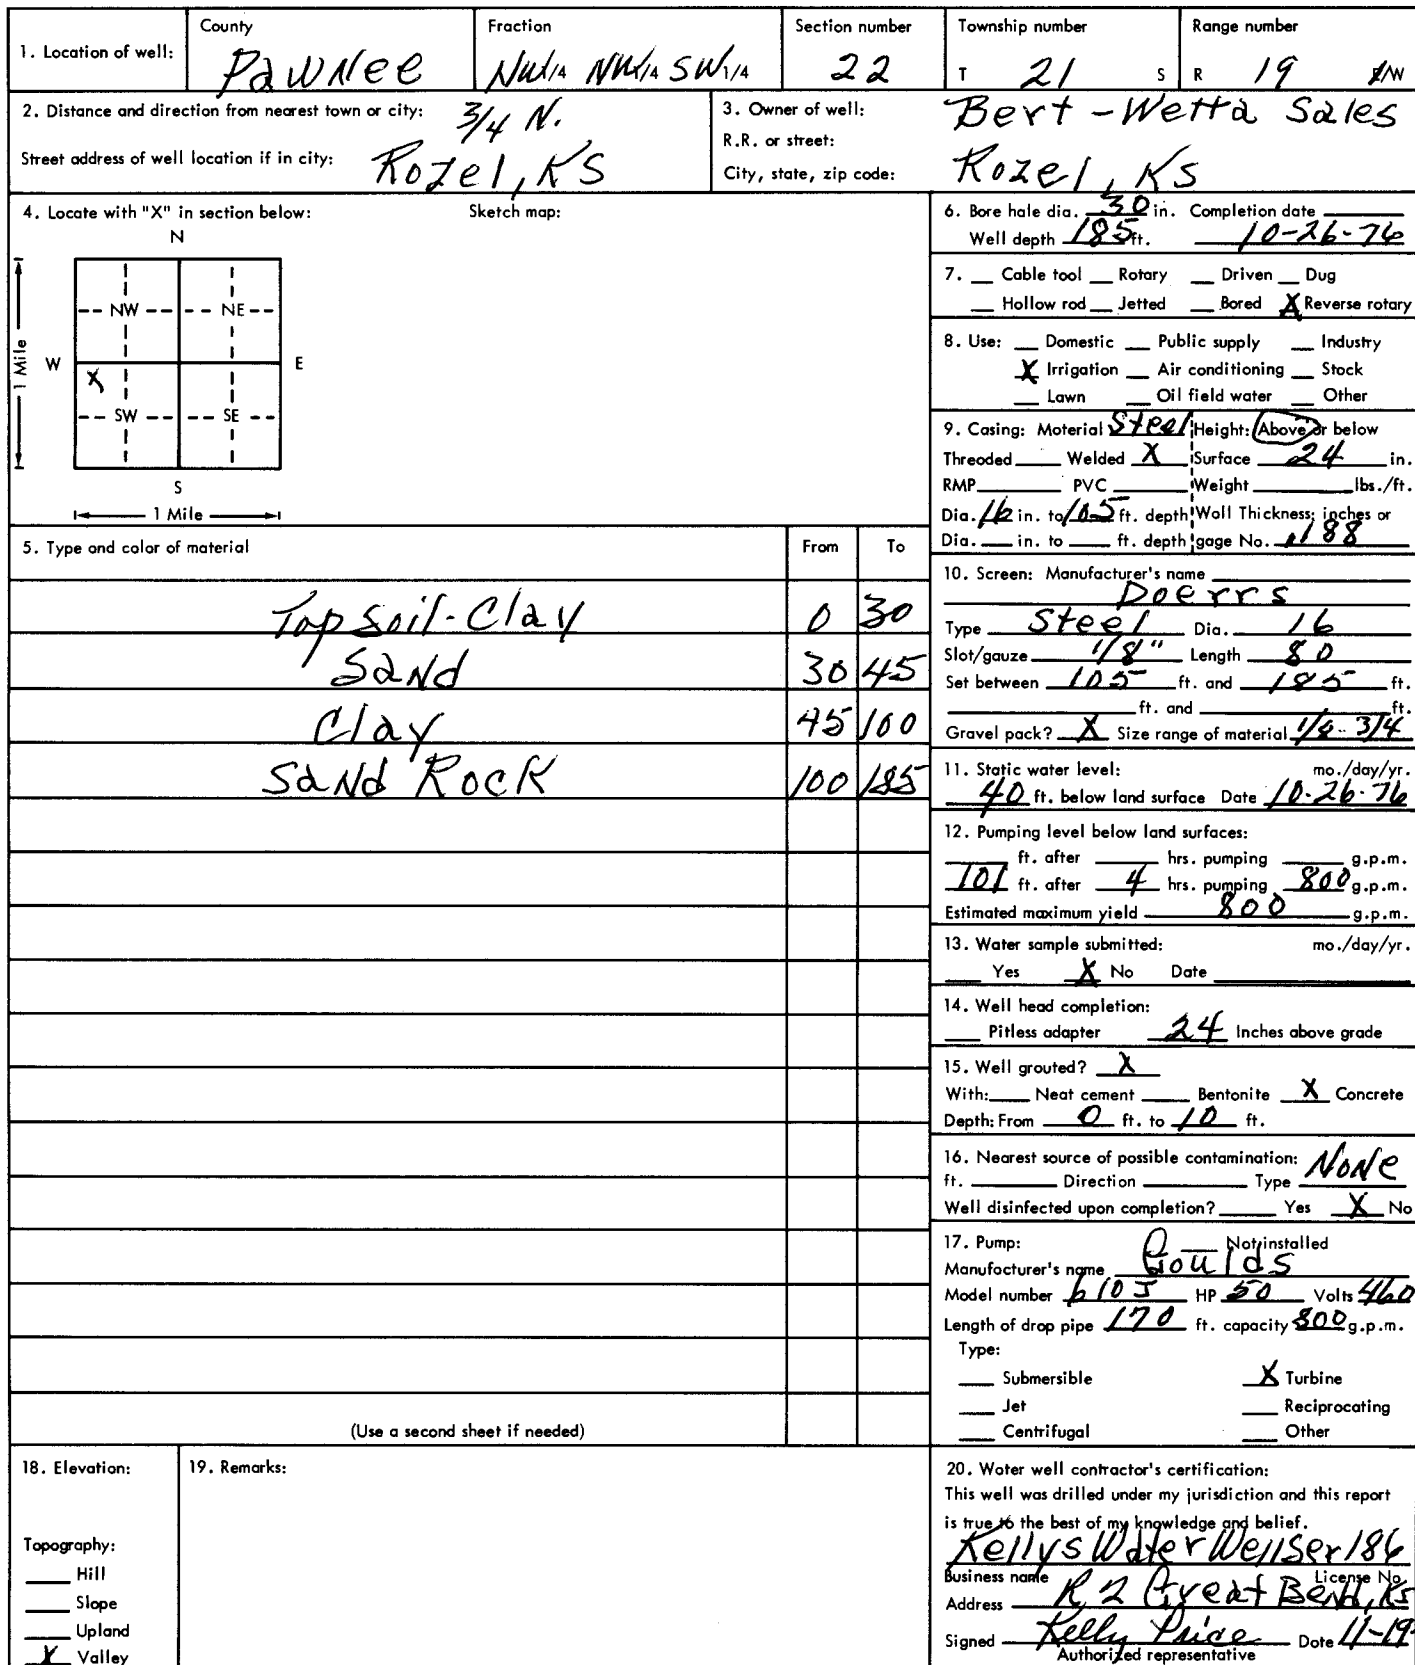 1. Location of well: County Pawnee Fraction NW1/4 NW1/4 SW1/4 Section number 22 Township number T 21 S Range number R 19 E/W
2. Distance and direction from nearest town or city: 3/4 N.
Street address of well location if in city: Rozel, KS
3. Owner of well: Bert-Wetta Sales
R.R. or street:
City, state, zip code: Rozel, KS
4. Locate with "X" in section below: Sketch map:
N
NW NE
W E
X
SW SE
S
1 Mile
1 Mile
5. Type and color of material From To
Top Soil-Clay 0 30
Sand 30 45
Clay 45 100
Sand Rock 100 185
(Use a second sheet if needed)
6. Bore hole dia. 30 in. Completion date
Well depth 185 ft. 10-26-76
7. Cable tool Rotary Driven Dug
Hollow rod Jetted Bored X Reverse rotary
8. Use: Domestic Public supply Industry
X Irrigation Air conditioning Stock
Lawn Oil field water Other
9. Casing: Material Steel Height: Above or below
Threaded Welded X Surface 24 in.
RMP PVC Weight lbs./ft.
Dia. 16 in. to 105 ft. depth Wall Thickness: inches or
Dia. in. to ft. depth gage No. .188
10. Screen: Manufacturer's name
Doerrs
Type Steel Dia. 16
Slot/gauze 1/8" Length 80
Set between 105 ft. and 185 ft.
ft. and ft.
Gravel pack? X Size range of material 1/8-3/4
11. Static water level: mo./day/yr.
40 ft. below land surface Date 10-26-76
12. Pumping level below land surfaces:
ft. after hrs. pumping g.p.m.
101 ft. after 4 hrs. pumping 800 g.p.m.
Estimated maximum yield 800 g.p.m.
13. Water sample submitted: mo./day/yr.
Yes X No Date
14. Well head completion:
Pitless adapter 24 Inches above grade
15. Well grouted? X
With: Neat cement Bentonite X Concrete
Depth: From 0 ft. to 10 ft.
16. Nearest source of possible contamination: None
ft. Direction Type
Well disinfected upon completion? Yes X No
17. Pump: Not installed
Manufacturer's name Goulds
Model number 610J HP 50 Volts 460
Length of drop pipe 170 ft. capacity 800 g.p.m.
Type:
Submersible X Turbine
Jet Reciprocating
Centrifugal Other
18. Elevation:
Topography:
Hill
Slope
Upland
X Valley
19. Remarks:
20. Water well contractor's certification:
This well was drilled under my jurisdiction and this report
is true to the best of my knowledge and belief.
Kellys Water Well Ser 186
Business name License No.
Address R 2 Great Bend, Ks
Signed Kelly Price Date 11-19
Authorized representative